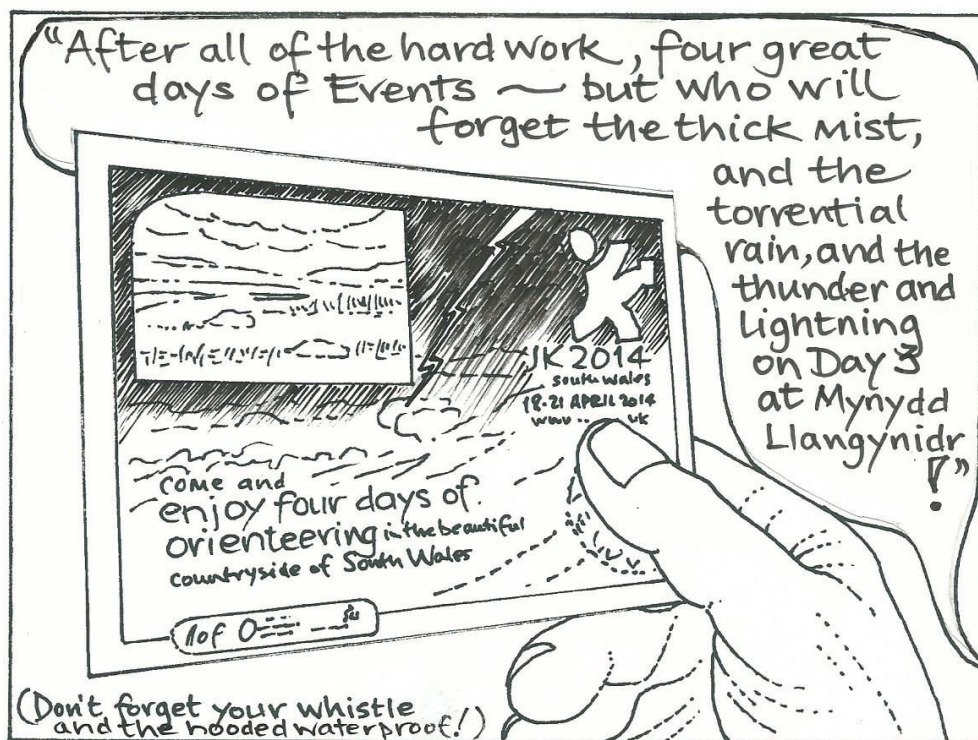 “After all of the hard work, four great
days of Events — but who will
forget the thick Mist,
and the
torrential
rain, and the
thunder and
Lightning
on Day 3
at Mynydd
Llangynidr
!”
JK 2014
South Wales
18-21 APRIL 2014
www .. uk
come and
enjoy four days of
orienteering in the beautiful
countryside of South Wales
1 of
(Don't forget your whistle
and the hooded waterproof!)